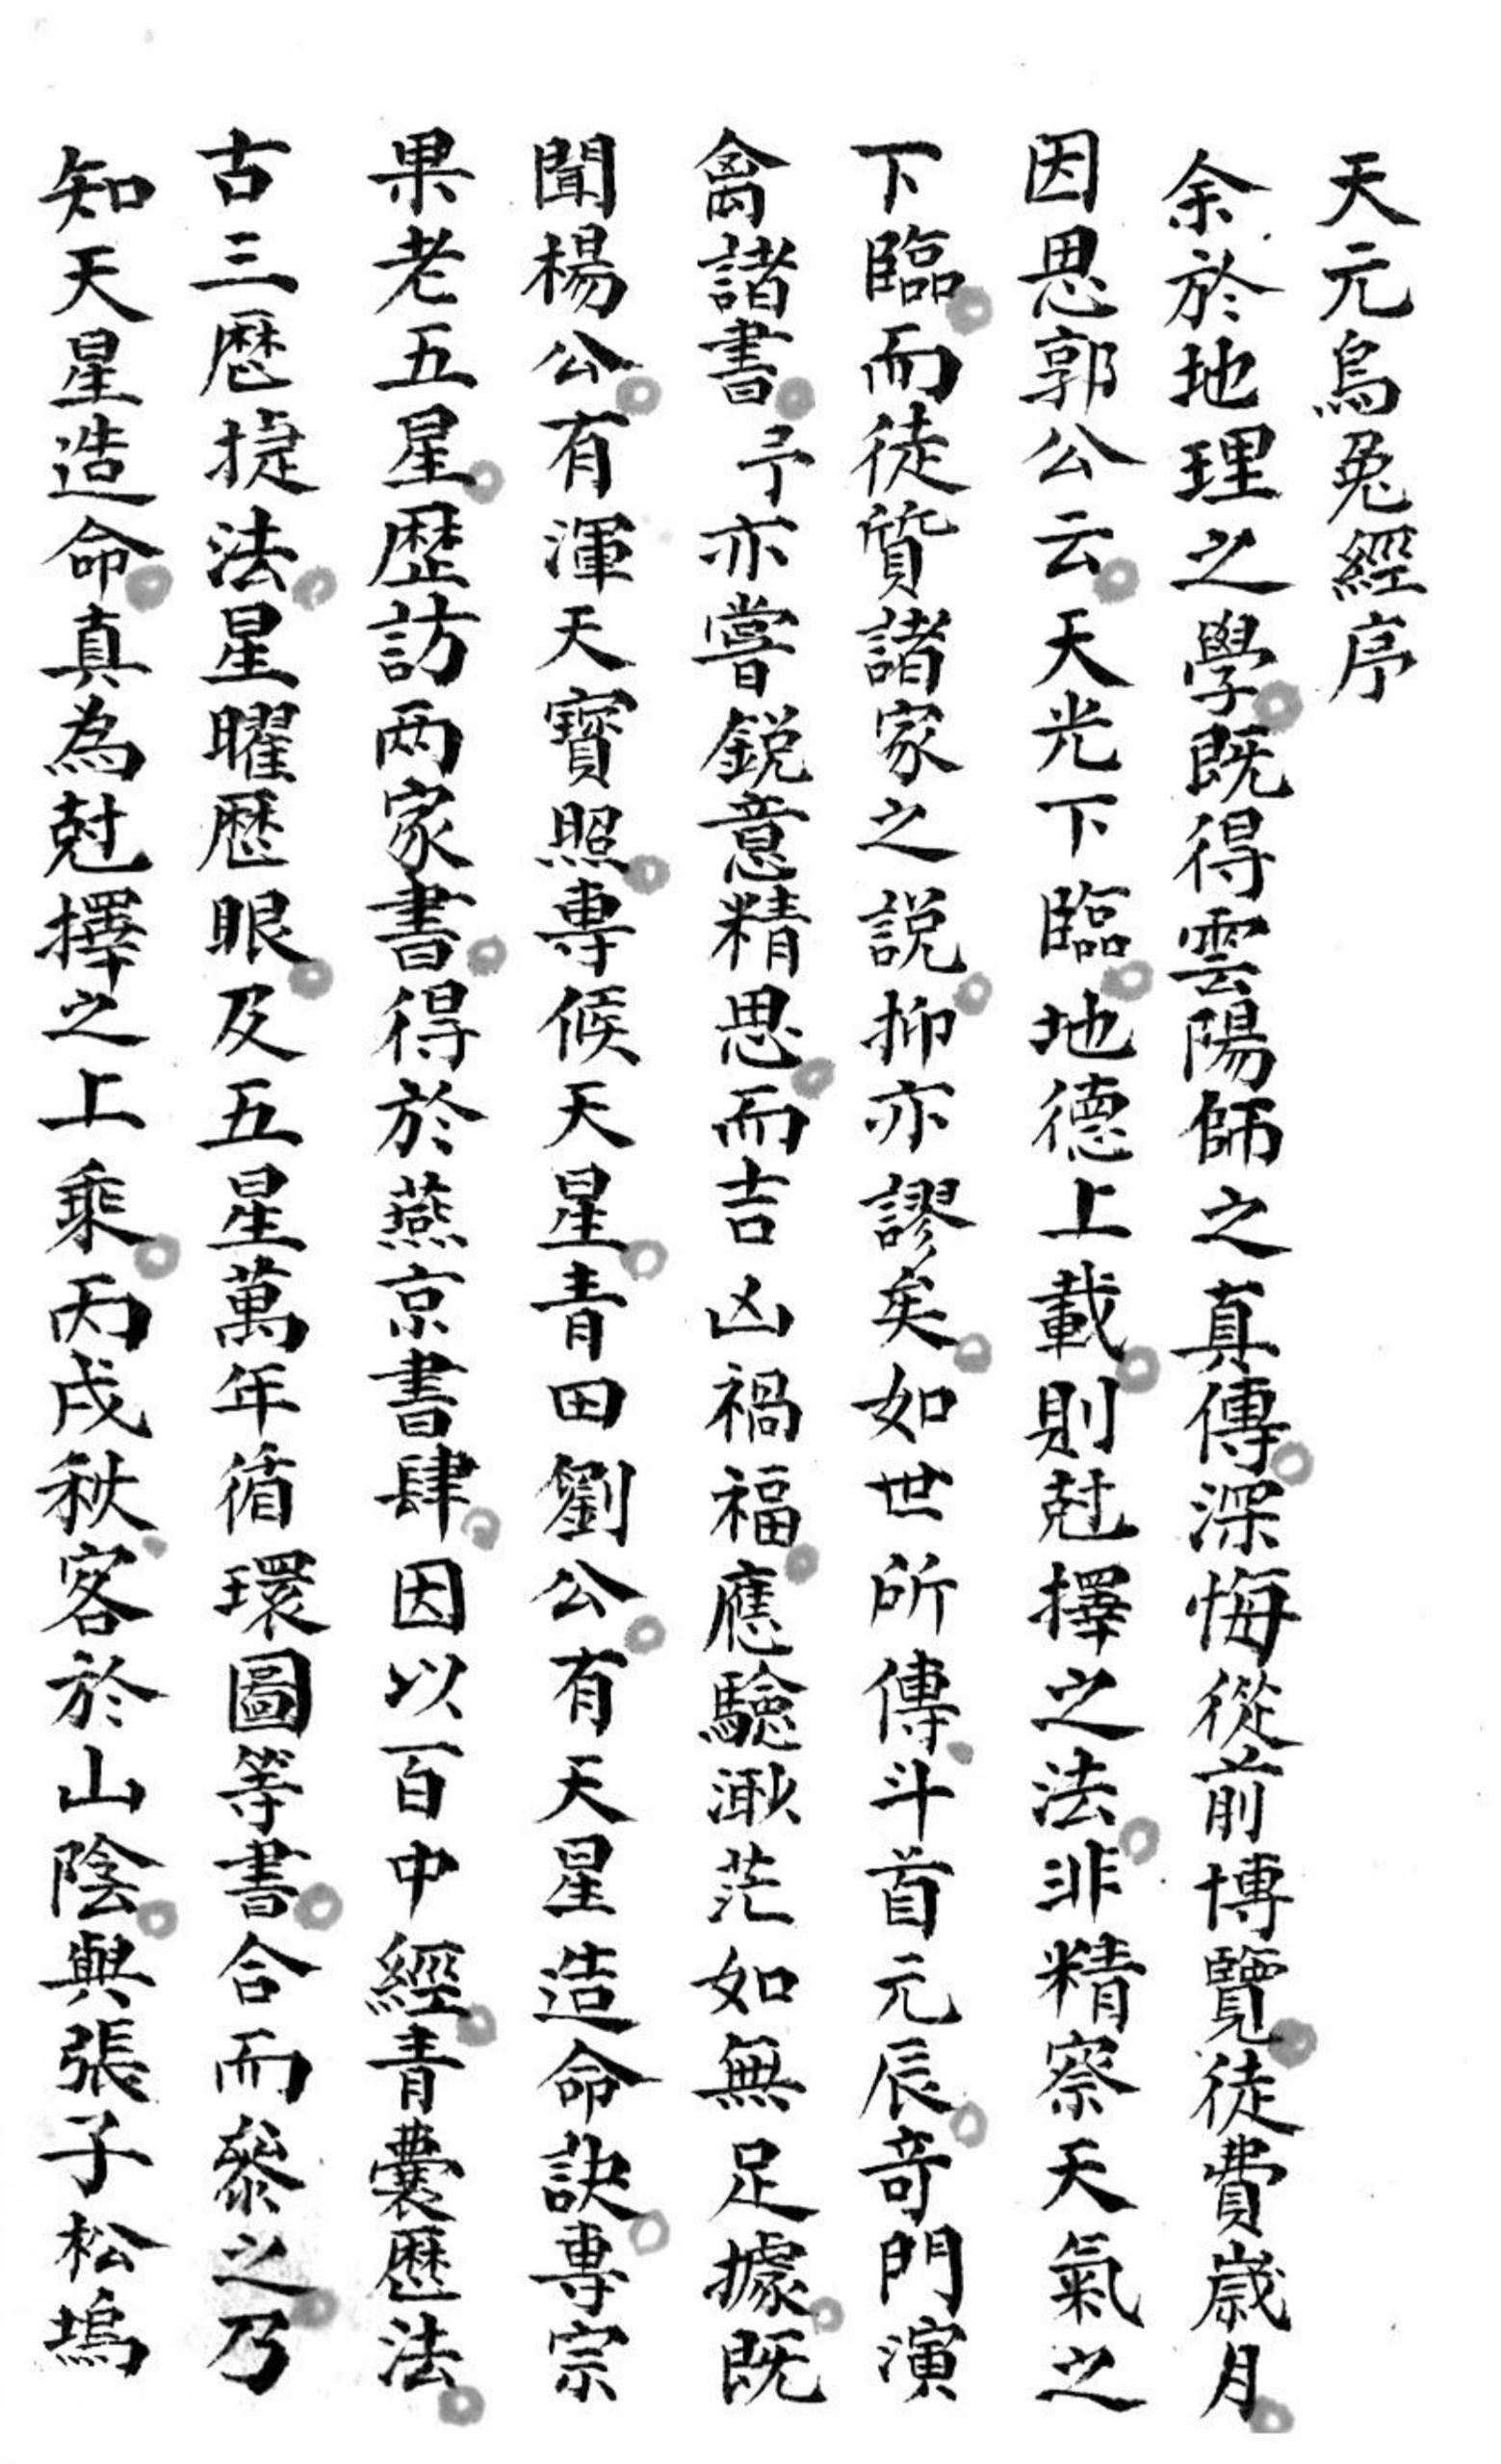 天元烏兔經序
余於地理之學既得雲陽師之真傳深悔從前博覽徒費嵗月
因思郭公云天光下臨地德上載則尅擇之法非精察天氣之
下臨而徒質諸家之説抑亦謬矣如世所傳斗首元辰竒門演
禽諸書予亦嘗鋭意精思而吉凶禍福應驗渺茫如無足據既
聞楊公有渾天寳照專候天星青田劉公有天星造命訣專宗
果老五星歴訪兩家書得於燕京書肆因以百中經青囊歷法
古三歴捷法星曜歷眼及五星萬年循環圖等書合而叅之乃
知天星造命真為尅擇之上乘丙戌秋客於山陰與張子松塢